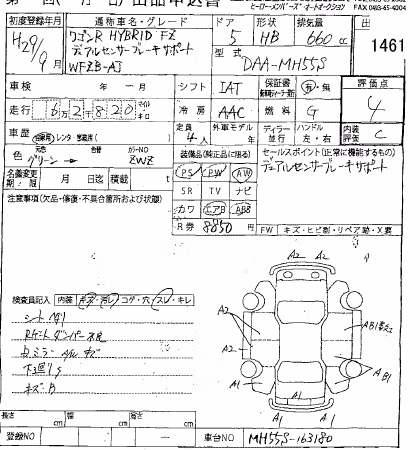 ヒーローメンバーズオートオークション FAX 0493-65-4004
初度登録年月 通称車名・グレード ドア 形状 排気量 出
H29/9 ワゴンR HYBRID FZ 5 HB 660 cc 1461
デュアルセンサーブレーキサポート 型式
WFZB-AJ DAA-MH55S
車検 年 月 シフト IAT 保証書 有・無 評価点
走行 62820 km マイル 冷房 AAC 燃料 G 4
車歴 自家用 レンタ 定員 4人 外車モデル ディーラー 並行 ハンドル 左・右 内装評価 C
色 元色 グリーン 色替 カラーNO ZWZ 装備品(純正品に限る) セールスポイント(正常に機能するもの)
名義変更期限 月 日迄 積載 t PS PW AW デュアルセンサーブレーキサポート
SR TV ナビ
注意事項(欠品・修復・不具合箇所および状態) カワ エアB ABS
R券 8850 FW キズ・ヒビ割・リペア跡・X要
検査員記入 内装 キズ・汚レ コゲ・穴 スレ・キレ
シート
Rゲートダンパー不良
下廻りS
キズ
A2
A2
A2
A1
A1
A1
A
B1
AB1
長さ cm 幅 cm 高さ cm
登録NO 車台NO MH55S-163180